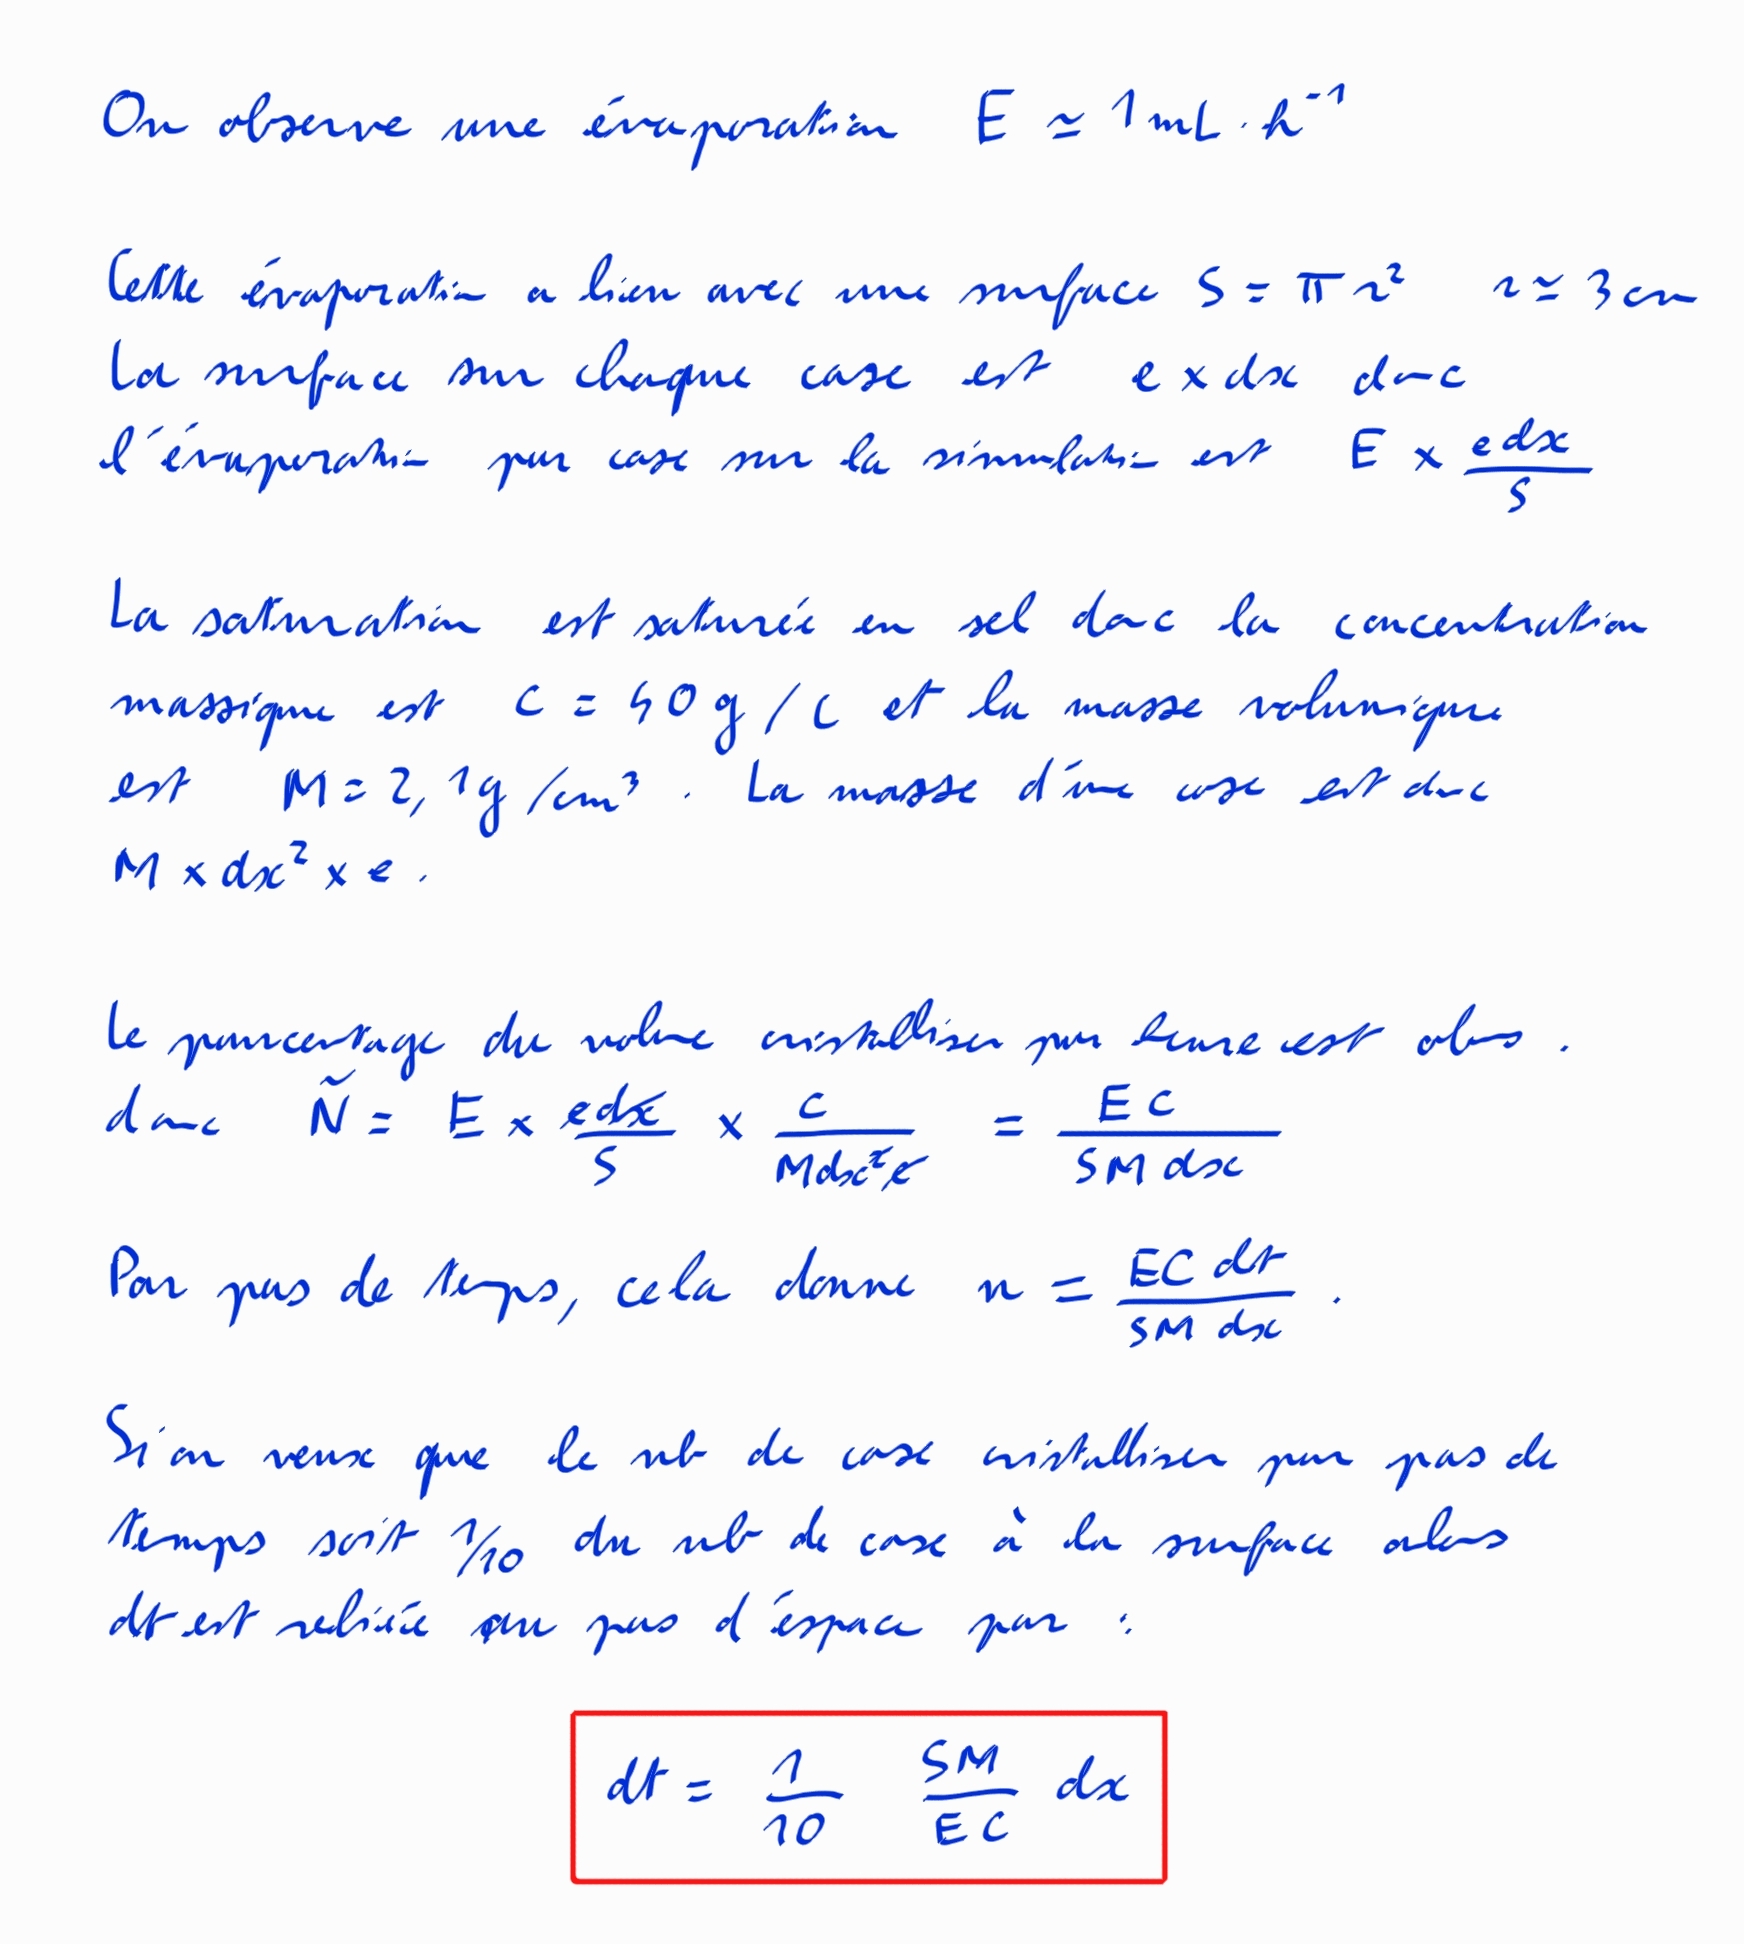 On observe une évaporation E ≃ 1 mL · h⁻¹
Cette évaporation a lieu avec une surface S = π r² r ≃ 3 cm
La surface sur chaque case est e × dx donc
l'évaporation par case sur la simulation est E × edx/S
La saturation est saturée en sel donc la concentration
massique est C = 40 g/L et la masse volumique
est M = 2,1g/cm³. La masse d'une case est donc
M × dx² × e.
Le pourcentage du volume cristalliser par heure est alors.
donc Ñ = E × edx/S × C/Mdx²e = EC/SMdx
Par pas de temps, cela donne n = EC dt/SM dx.
Si on veux que le nb de case cristalliser par pas de
temps soit 1/10 du nb de case à la surface alors
dt est reliée au pas d'espace par :
dt = 1/10 SM/EC dx